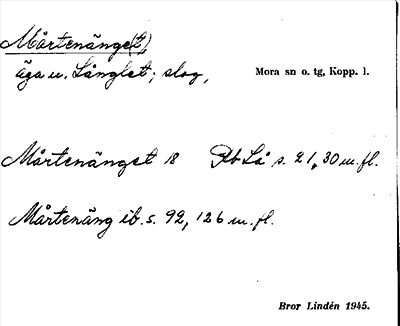 Mårtenänge(t),
äga u. Långlet; slog,
Mora sn o. tg, Kopp. l.
Mårtenänget 18 Rb Lå s. 21, 30 m. fl.
Mårtenäng ib. s. 92, 126 m. fl.
Bror Lindén 1945.